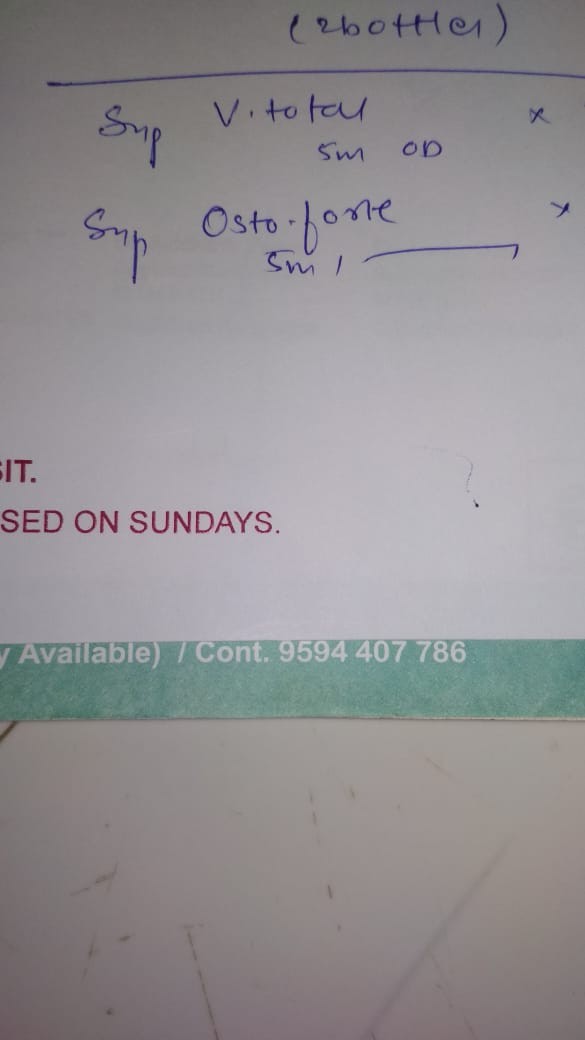 (2bottles)
Syp V. total x
5ml OD
Syp Osto. forte x
5ml
SIT.
SED ON SUNDAYS.
y Available) / Cont. 9594 407 786